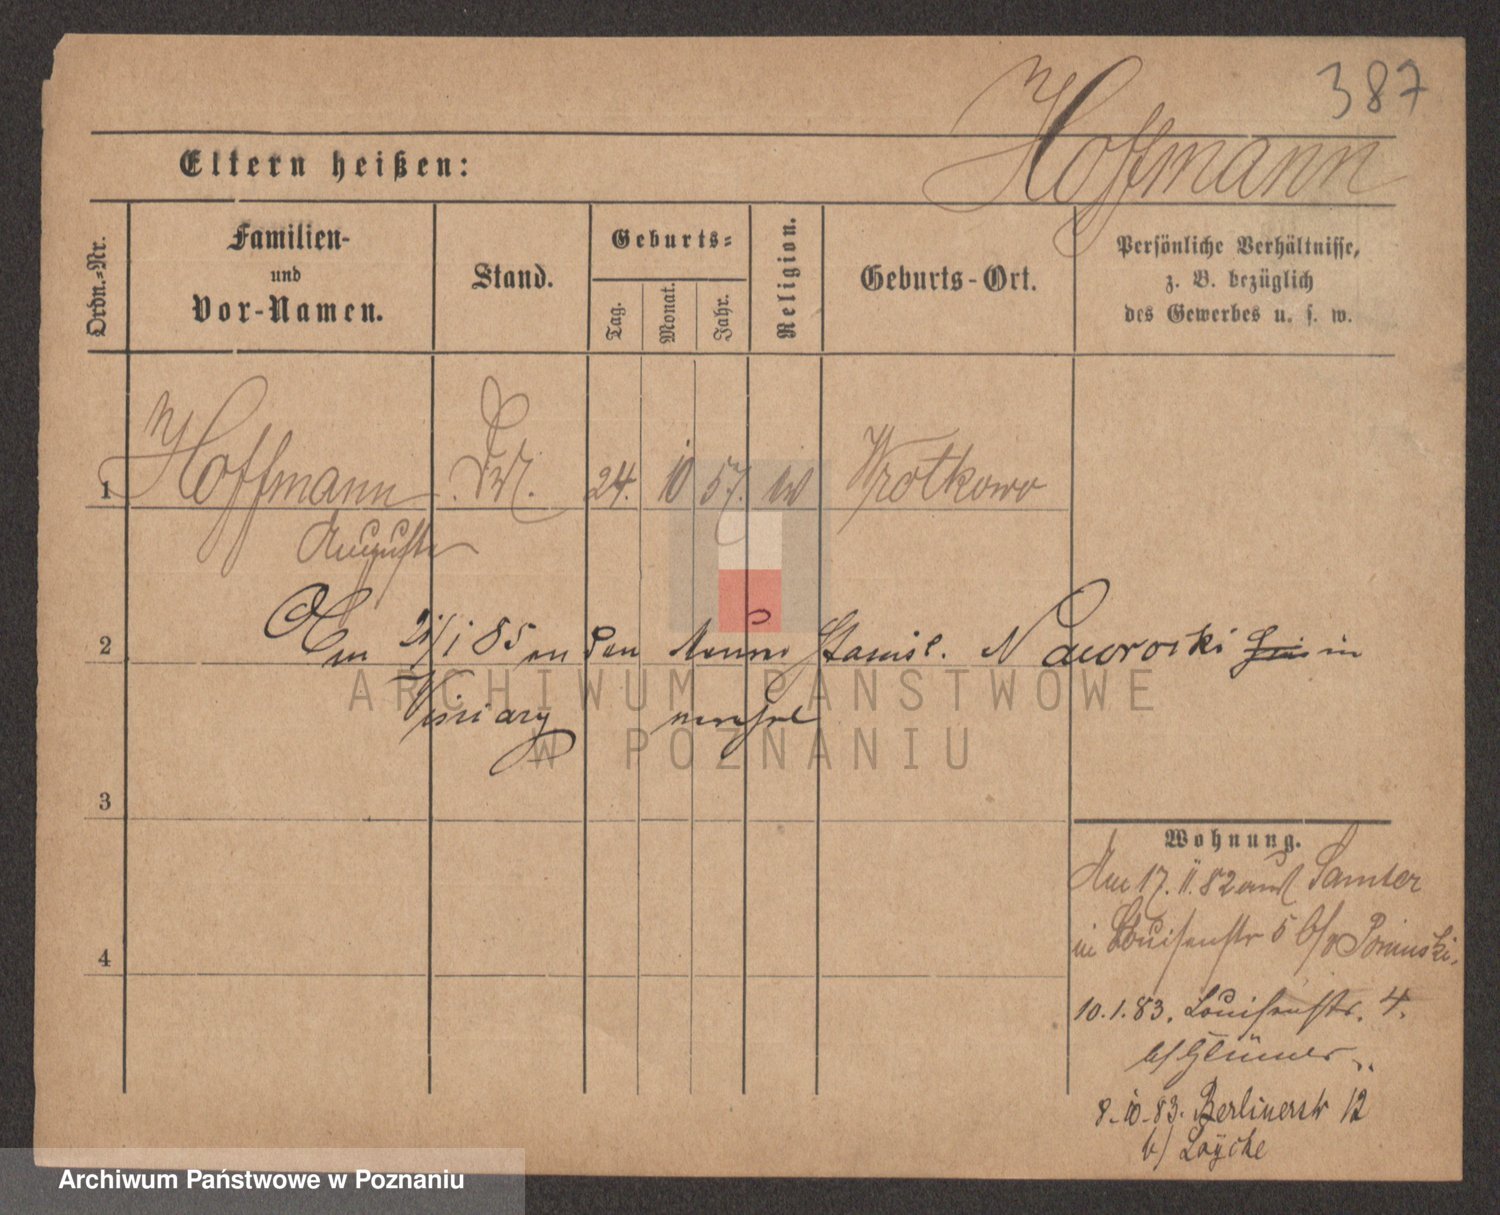 387
Hoffmann
Eltern heißen:
Ordn.-Nr.
Familien-
und
Vor-Namen.
Stand.
Geburts-
Tag.
Monat.
Jahr.
Religion.
Geburts-Ort.
Persönliche Verhältnisse,
z. B. bezüglich
des Gewerbes u. s. w.
1 Hoffmann 24. 10 57. Wrotkowo
Auguste
Am 21/1 85 an den Stanisl. Naworski in
2
ARCHIWUM PAŃSTWOWE
W POZNANIU
3
Wohnung.
Am 17. II. 82 aus Samter
in Louisenstr 5 b/v Poninski.
4
10.1.83. Louisenstr. 4.
b/ Glümer.
8.10.83. Berlinerstr 12
b/ Layche
Archiwum Państwowe w Poznaniu